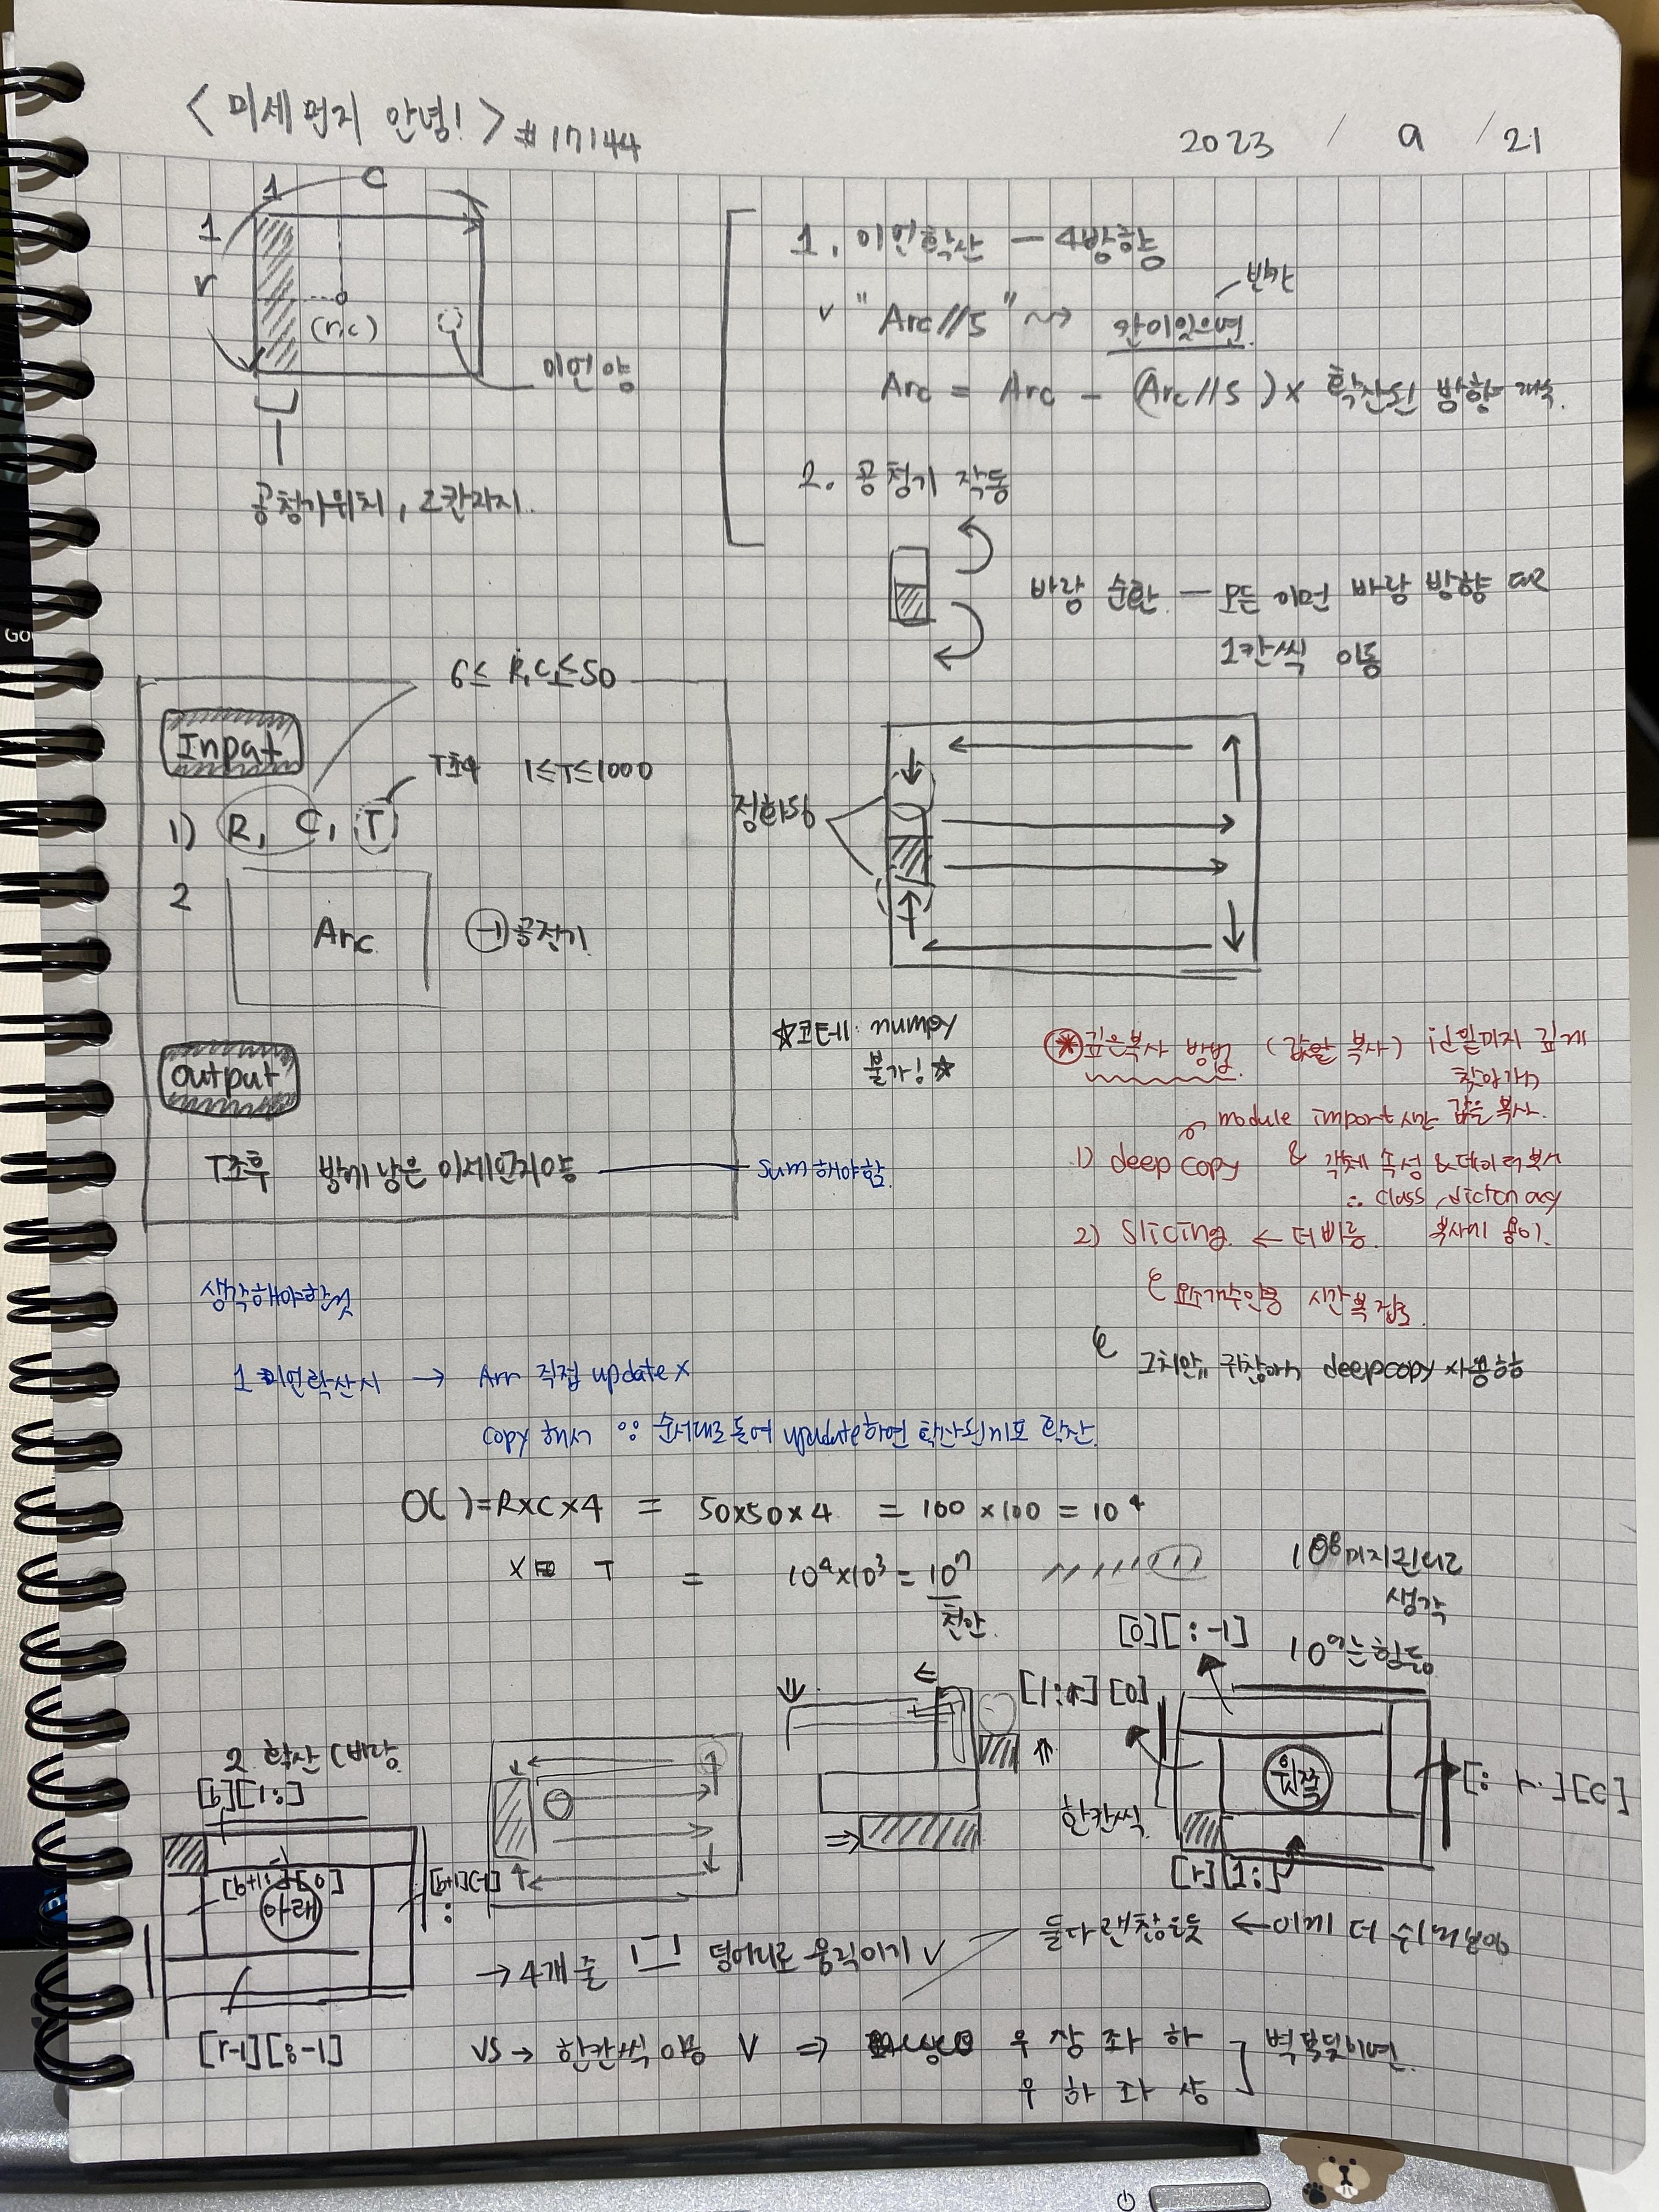 <미세먼지 안녕!> #17144
2023 / 9 / 21
1 C
1
r
(r,c)
미먼양
공청기위치, 2칸차지.
1. 미먼확산 - 4방향
v "Arc//5" 칸이있으면
Arc = Arc - (Arc//5) x 확산된 방향 개수.
2. 공청기 작동
바람 순환 - 모든 미먼 바람 방향 대로
1칸씩 이동
6≤ R,C ≤50
Input
T초후 1≤T≤1000
1) R, C, T
2
Arc
-1 공청기
정화됨
Output
T초후 방에 남은 미세먼지양
sum해야함.
☆코테 numpy
불가!☆
* 깊은복사 방법 (값만 복사)
찾아가서
module import시간 값은 복사.
1) deepcopy & 객체 속성 & 데이터복사
∴ class, dictionary
2) Slicing ← 더빠름. 복사에 용이.
요소개수만큼 시간복잡도
그치만 귀찮아서 deepcopy 사용함
생각해야할것
1 미먼확산시 → Arr 직접 update x
copy 해서 ∵ 순서대로돌며 update하면 확산된미포 확산.
O( )=RxCx4 = 50x50x4 = 100 x100 = 10⁴
x T = 10⁴x10³ = 10⁷
천만.
10⁸까지된다고
생각
10⁹는힘듦
2. 확산 (바람
[b][1:]
[b+1:][0]
아래
[r-1][:-1]
[0][:-1]
[1:r][0]
한칸씩
위쪽
[:r][c]
[r][1:]
→4개 줄 덩어리로 움직이기 v
둘다괜찮은듯 ←이게 더 쉬워보임
vs → 한칸씩 이동 v ⇒ 우 상 좌 하
우 하 좌 상
벽 부딪히면.